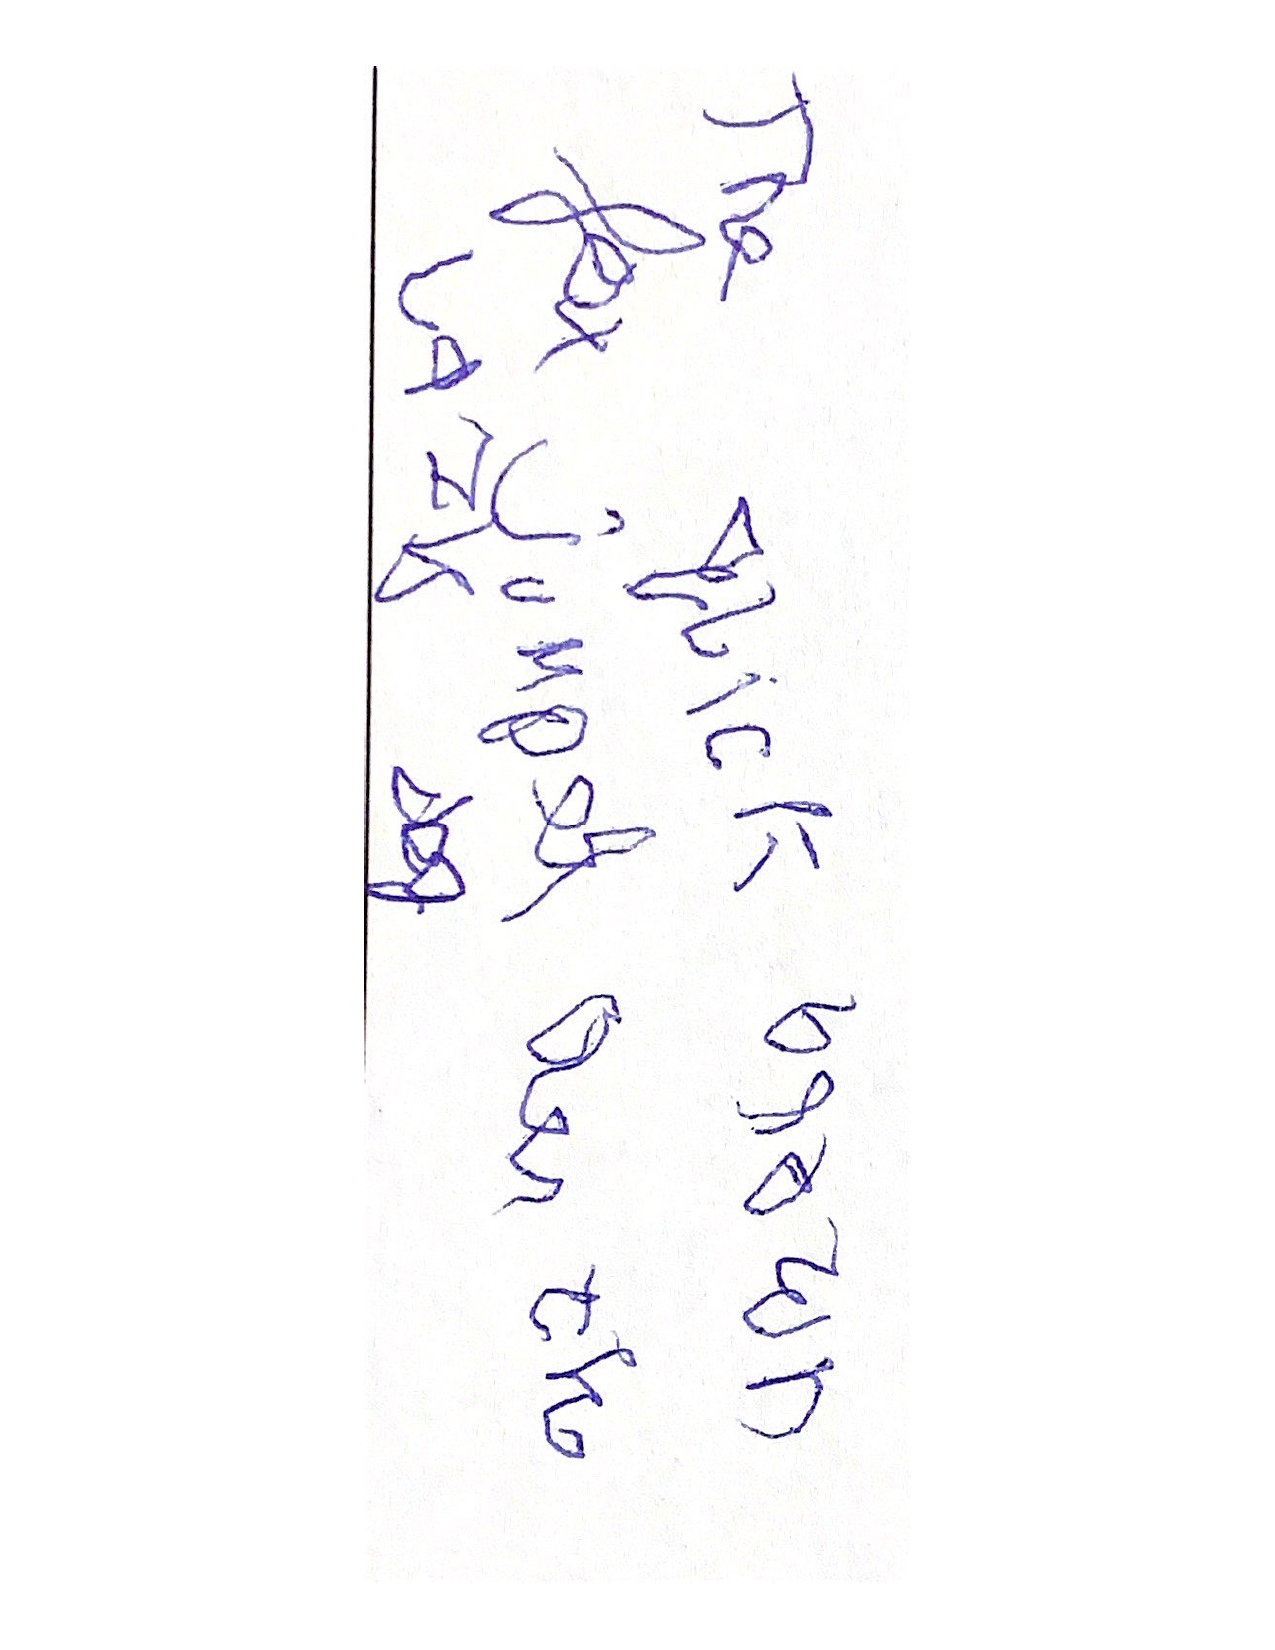 The quick brown
fox jumps over the
lazy dog